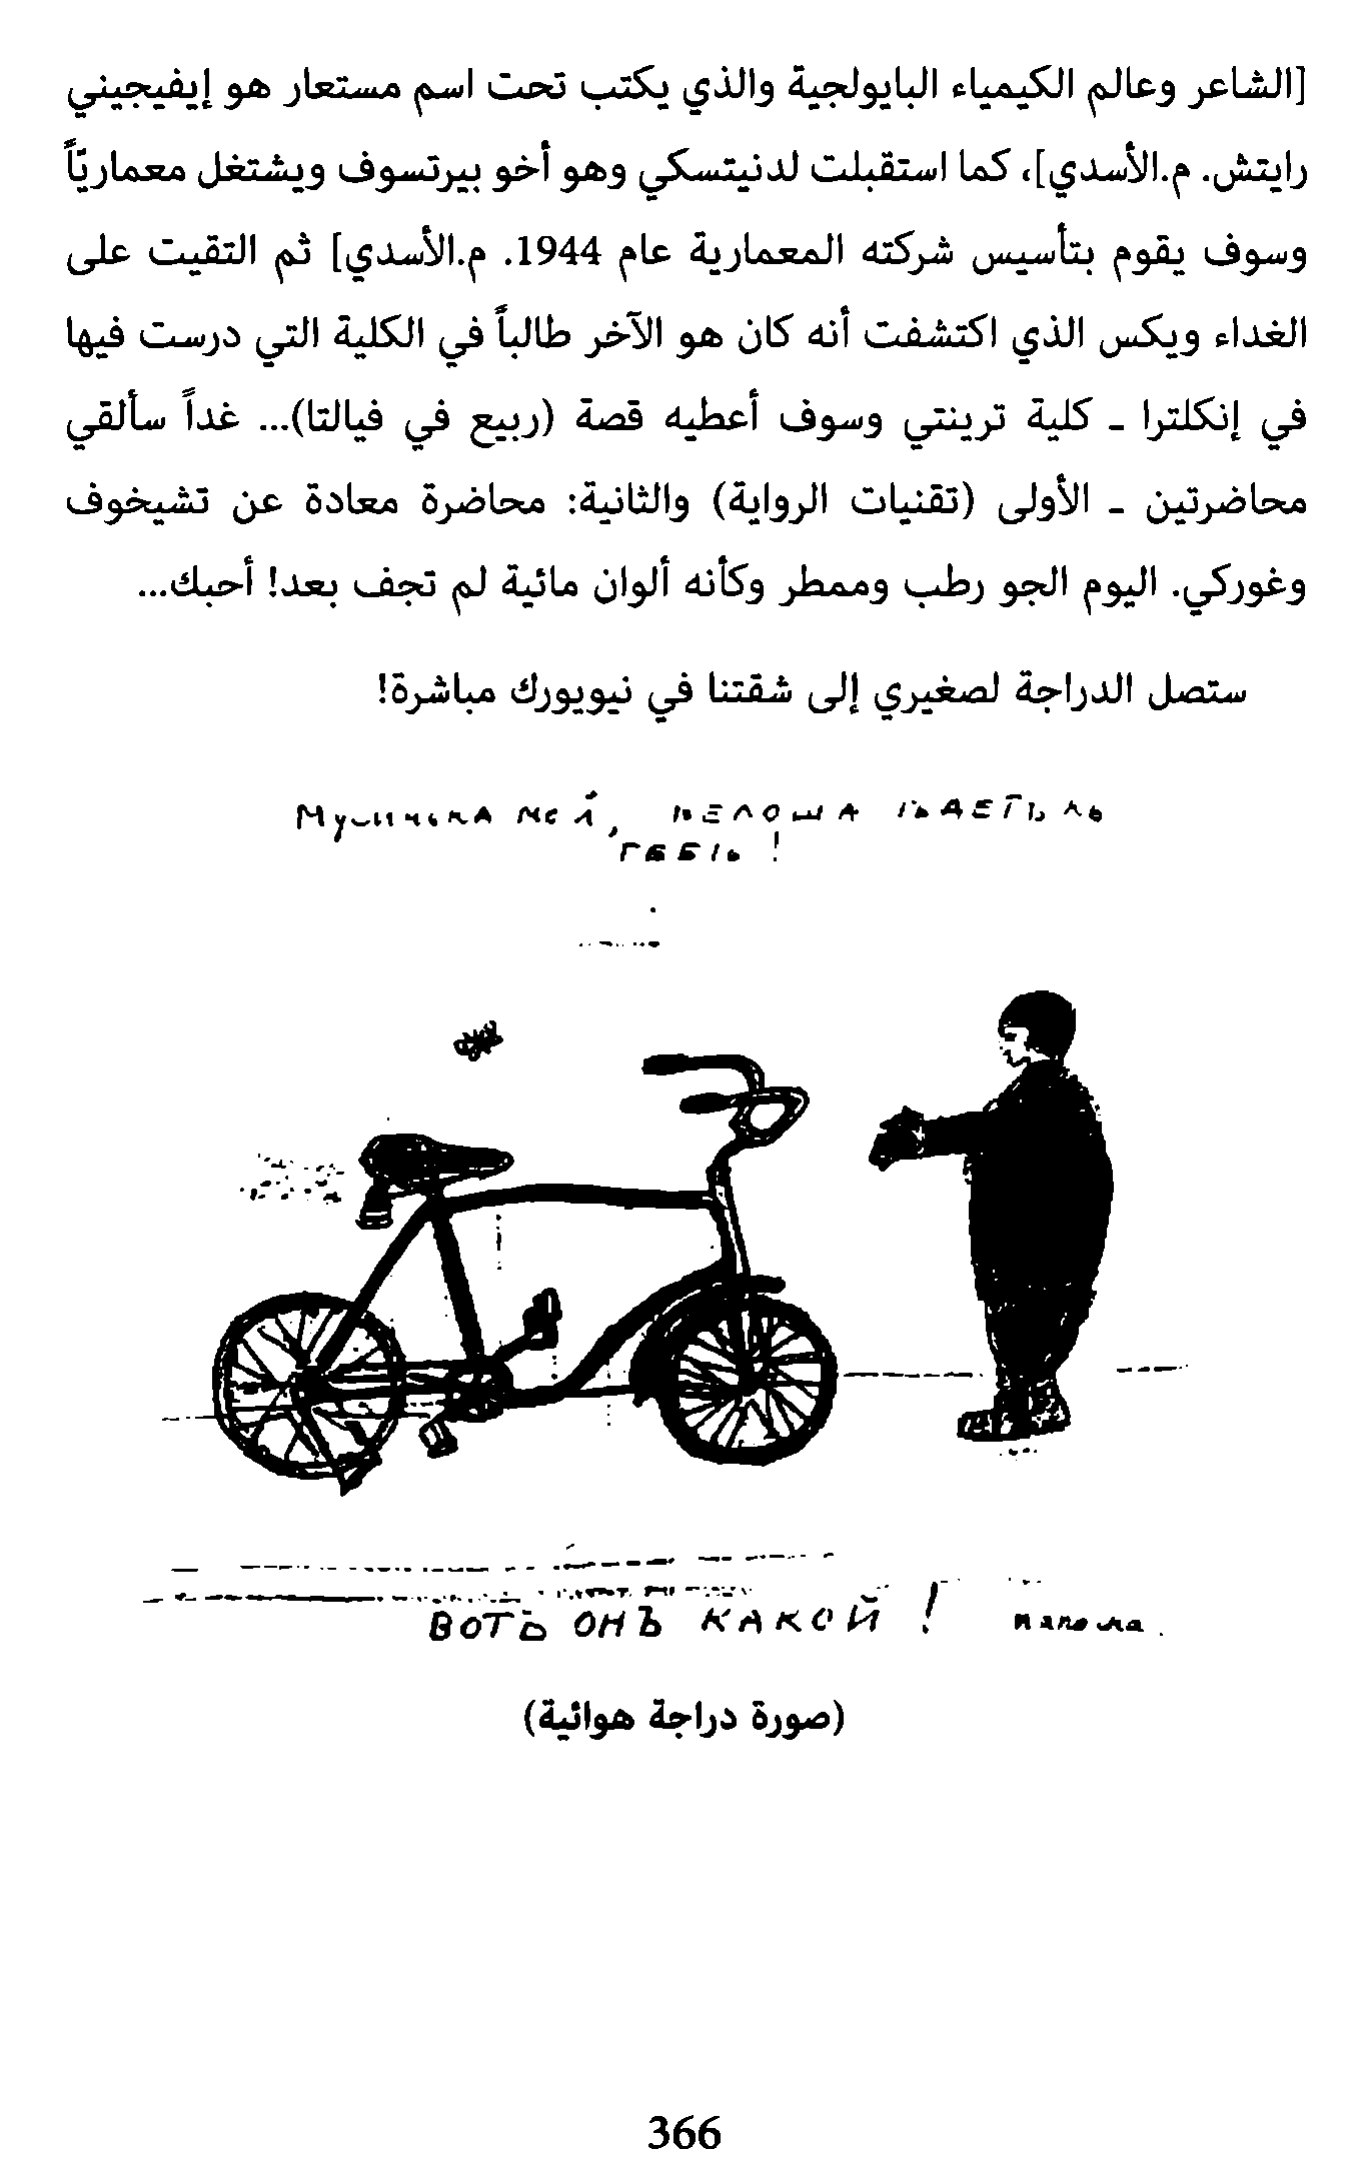 [الشاعر وعالم الكيمياء البايولجية والذي يكتب تحت اسم مستعار هو إيفيجيني
رايتش. م.الأسدي]، كما استقبلت لدنيتسكي وهو أخو بيرتسوف ويشتغل معماريّاً
وسوف يقوم بتأسيس شركته المعمارية عام 1944. م.الأسدي] ثم التقيت على
الغداء ويكس الذي اكتشفت أنه كان هو الآخر طالباً في الكلية التي درست فيها
في إنكلترا ـ كلية ترينتي وسوف أعطيه قصة (ربيع في فيالتا)... غداً سألقي
محاضرتين ـ الأولى (تقنيات الرواية) والثانية: محاضرة معادة عن تشيخوف
وغوركي. اليوم الجو رطب وممطر وكأنه ألوان مائية لم تجف بعد! أحبك...
ستصل الدراجة لصغيري إلى شقتنا في نيويورك مباشرة!
ВОТЪ ОНЪ КАКОЙ !
(صورة دراجة هوائية)
366